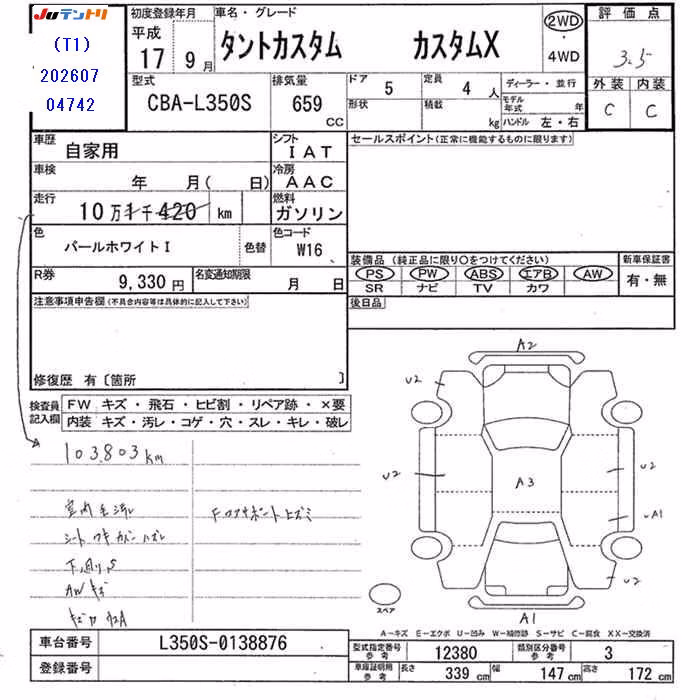 Juテントリ
(T1)
202607
04742
初度登録年月
平成
17年 9月
車名・グレード
タントカスタム カスタムX
2WD
・
4WD
評価点
3.5
外装 内装
C C
型式
CBA-L350S
排気量
659
CC
ドア 5
形状
定員 4人
積載 kg
ディーラー・並行
モデル年式 年
ハンドル 左・右
車歴
自家用
シフト
IAT
車検
年 月( 日)
冷房
AAC
走行
10万1千420 km
燃料
ガソリン
色
パールホワイトI
色替
色コード
W16
R券
9,330円
名変通知期限
月 日
セールスポイント(正常に機能するものに限ります)
装備品(純正品に限り〇をつけてください)
PS PW ABS エアB AW
SR ナビ TV カワ
新車保証書
有・無
後日品
注意事項申告欄(不具合内容等は具体的に記入して下さい)
修復歴 有〔箇所 〕
検査員記入欄
FW キズ・飛石・ヒビ割・リペア跡・×要
内装 キズ・汚レ・コゲ・穴・スレ・キレ・破レ
103,803km
室内毛汚レ
シートワキカバーハズレ
下廻りS
AWキズ
Fコアサポートヒズミ
A2
U2
U2
U2
A3
A1
U2
A1
スペア
A-キズ E-エクボ U-凹み W-補修跡 S-サビ C-腐食 XX-交換済
車台番号
L350S-0138876
登録番号
型式指定番号
参考
12380
類別区分番号
参考
3
車庫証明用
参考
長さ 339cm
幅 147cm
高さ 172cm